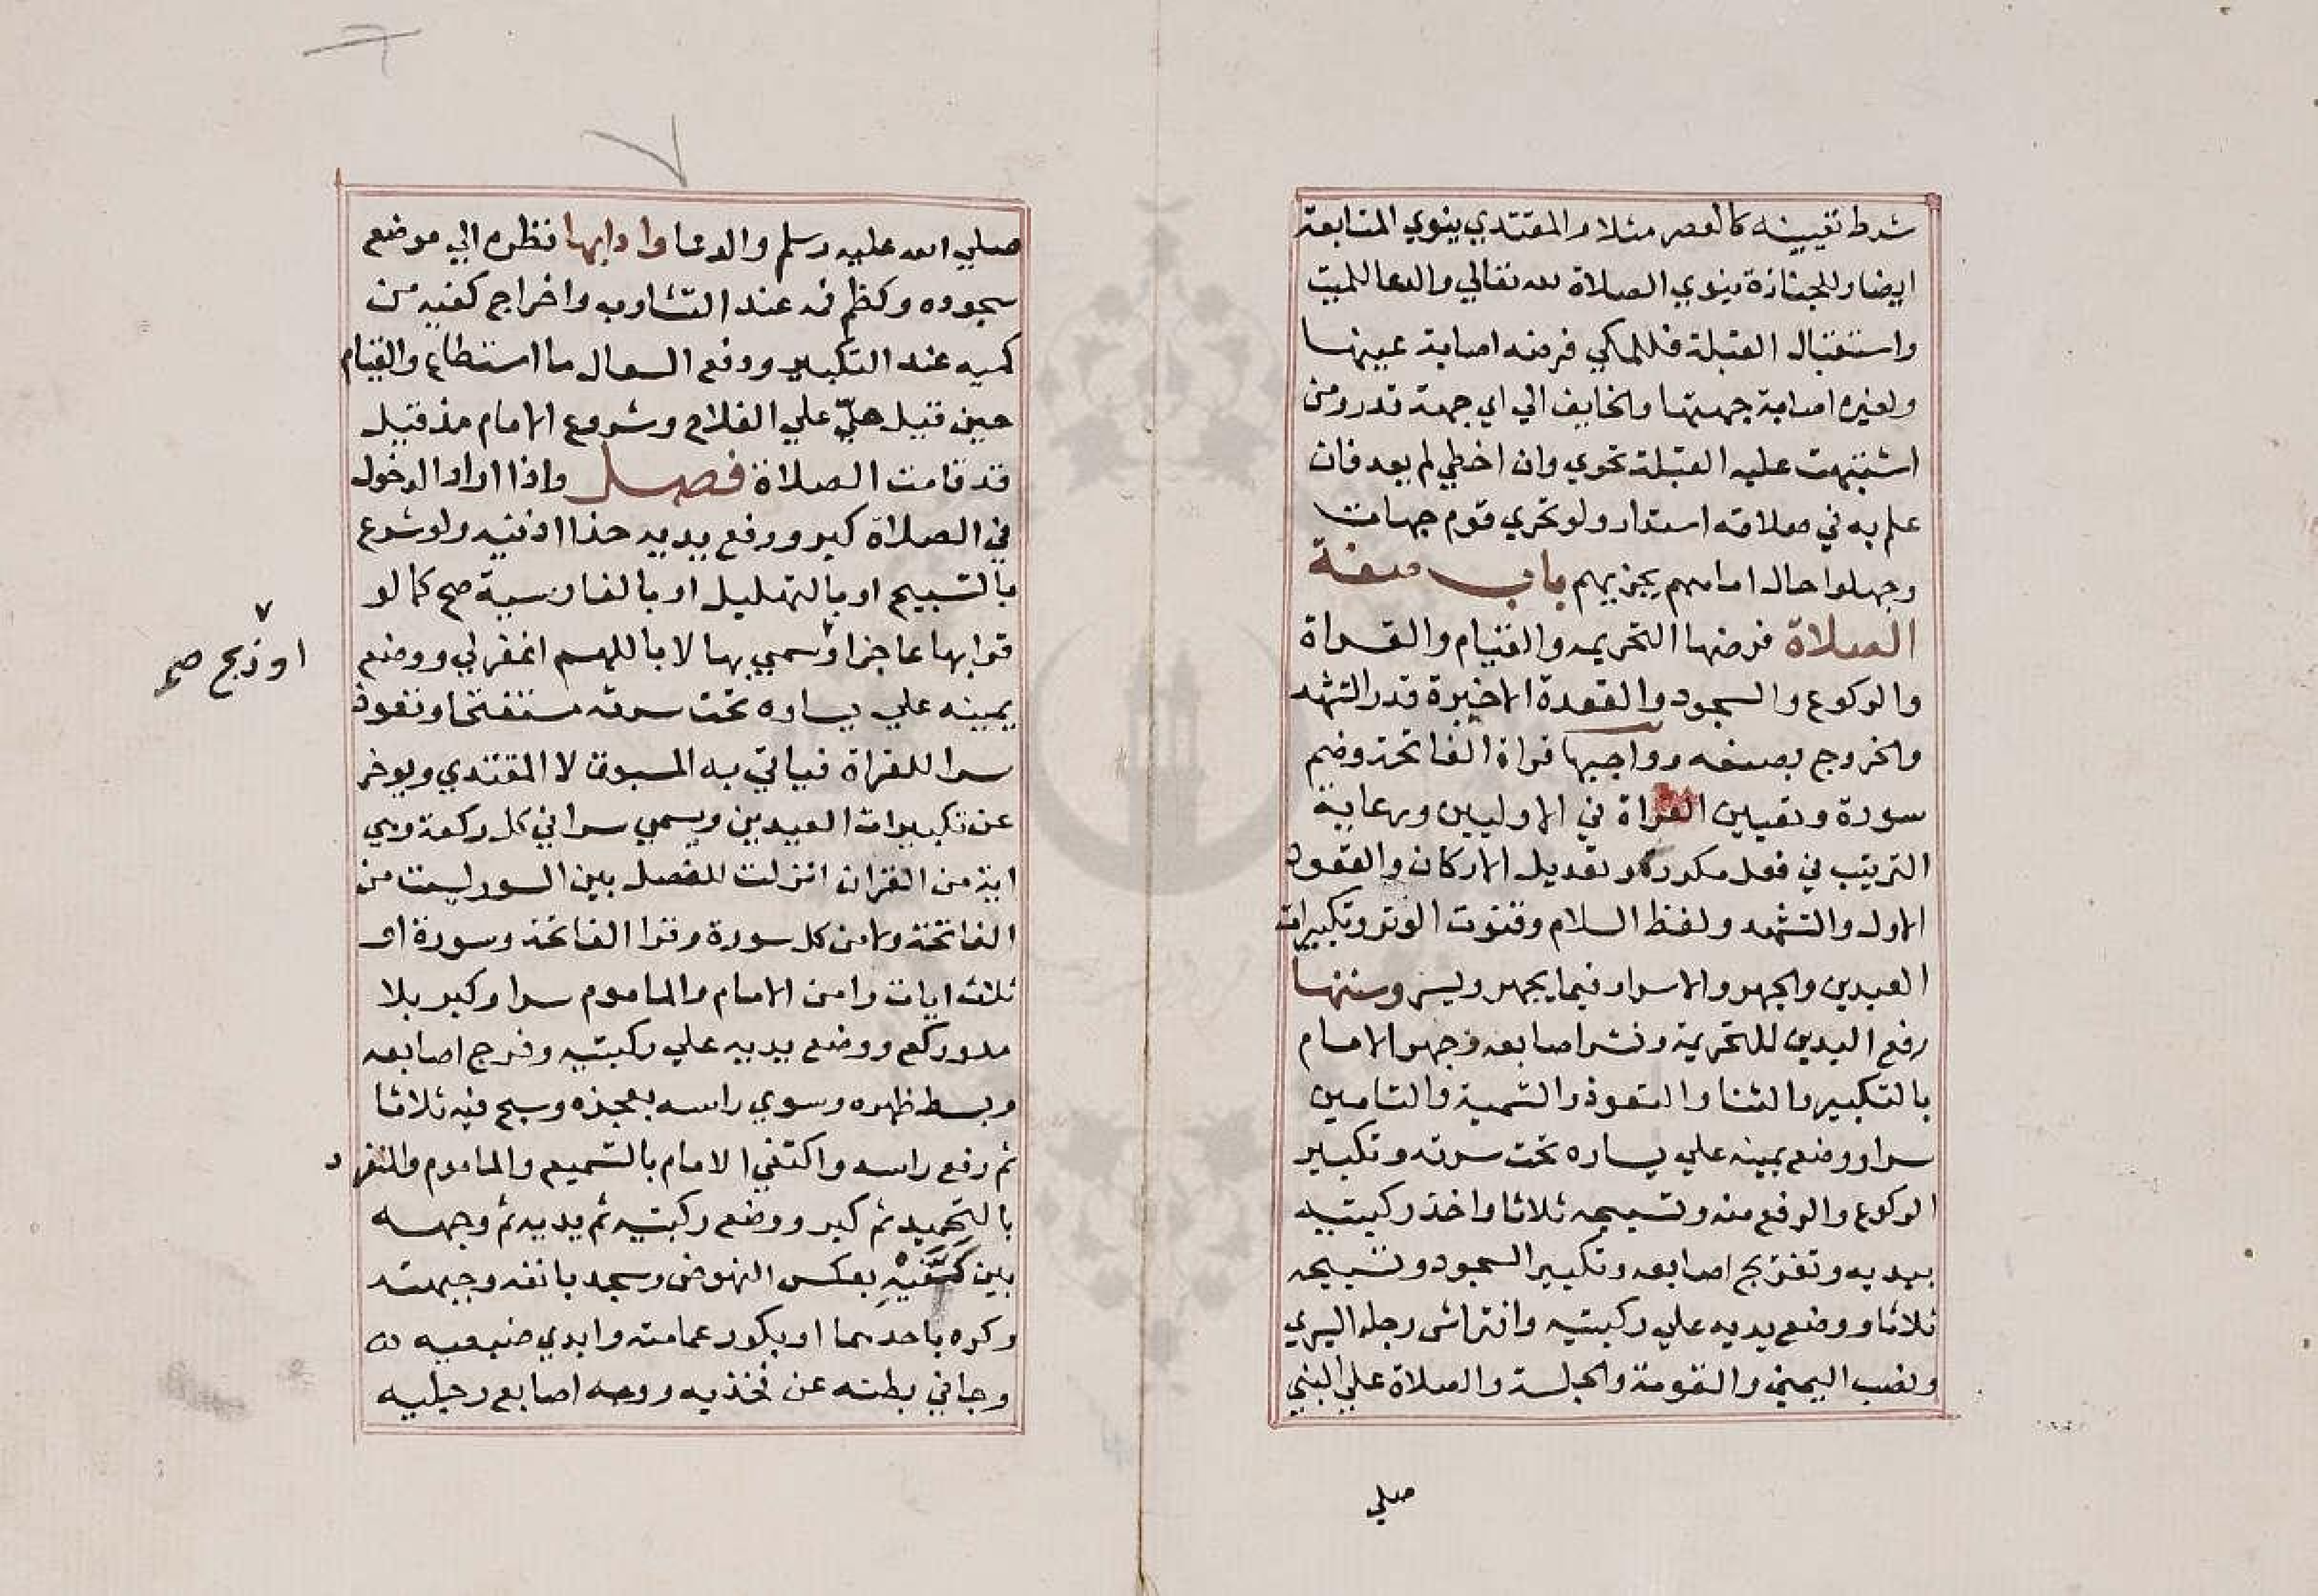 شرط تعيينه كالعصر مثلا والمقتدي ينوي المتابعة
ايضا وللجنازة ينوي الصلاة لله تعالي والدعا للميت
واستقبال القبلة فللمكي فرضه اصابة عينها
ولغيره اصابة جهتها والخايف الي اي جهة قدر ومن
اشتبهت عليه القبلة تحري وان اخطي لم يعد فان
علم به في صلاته استدار ولو تحري قوم جهات
وجهلوا حال امامهم يجزيهم باب صفة
الصلاة فرضها التحريمه والقيام والقراة
والركوع والسجود والقعدة الاخيرة قدر التشهد
والخروج بصنعه وواجبها قراة الفاتحة وضم
سورة وتعيين القراة في الاوليين ورعاية
الترتيب في فعل مكرر وتعديل الاركان والقعود
الاول والتشهد ولفظ السلام وقنوت الوتر وتكبيرات
العيدين والجهر والاسرار فيما يجهر ويسر وسننها
رفع اليدين للتحريمة ونشر اصابعه وجهر الامام
بالتكبير والثنا والتعوذ والتسمية والتامين
سرا ووضع يمينه علي يساره تحت سرته وتكبير
الركوع والرفع منه وتسبيحه ثلاثا واخذ ركبتيه
بيديه وتفريج اصابعه وتكبير السجود وتسبيحه
ثلاثا ووضع يديه علي ركبتيه وافتراش رجله اليسري
ونصب اليمني والقومة والجلسة والصلاة علي النبي
صلي
صلي الله عليه وسلم والدعا وادابها نظره الي موضع
سجوده وكظم فمه عند التثاوب واخراج كفيه من
كميه عند التكبير ودفع السعال ما استطاع والقيام
حين قيل حيّ علي الفلاح وشروع الامام مذ قيل
قد قامت الصلاة فصل واذا اراد الدخول
في الصلاة كبر ورفع يديه حذا اذنيه ولو شرع
بالتسبيح او بالتهليل او بالفارسية صح كما لو
قرا بها عاجزا وسمي بها لا باللهم اغفر لي ووضع
او ذبح صح
يمينه علي يساره تحت سرته مستفتحا وتعوذ
سرا للقراة فياتي به المسبوق لا المقتدي ويوخر
عن تكبيرات العيدين ويسمي سرا في كل ركعة وهي
اية من القران انزلت للفصل بين السور ليست من
الفاتحة ولا من كل سورة وقرا الفاتحة وسورة او
ثلاث ايات وامن الامام والماموم سرا وكبر بلا
مد وركع ووضع يديه علي ركبتيه وفرج اصابعه
وبسط ظهره وسوي راسه بعجزه وسبح فيه ثلاثا
ثم رفع راسه واكتفي الامام بالتسميع والماموم والمنفرد
بالتحميد ثم كبر ووضع ركبتيه ثم يديه ثم وجهه
بين كَفَّيْهِ بعكس النهوض وسجد بانفه وجبهته
وكره باحدهما او بكور عمامته وابدي ضبعيه
وجافي بطنه عن فخذيه ووجه اصابع رجليه